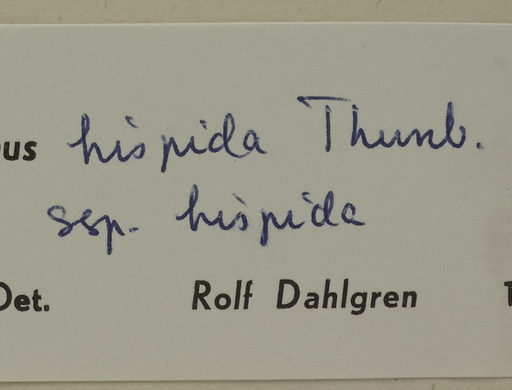 us hispida Thunb.
ssp. hispida
Det. Rolf Dahlgren